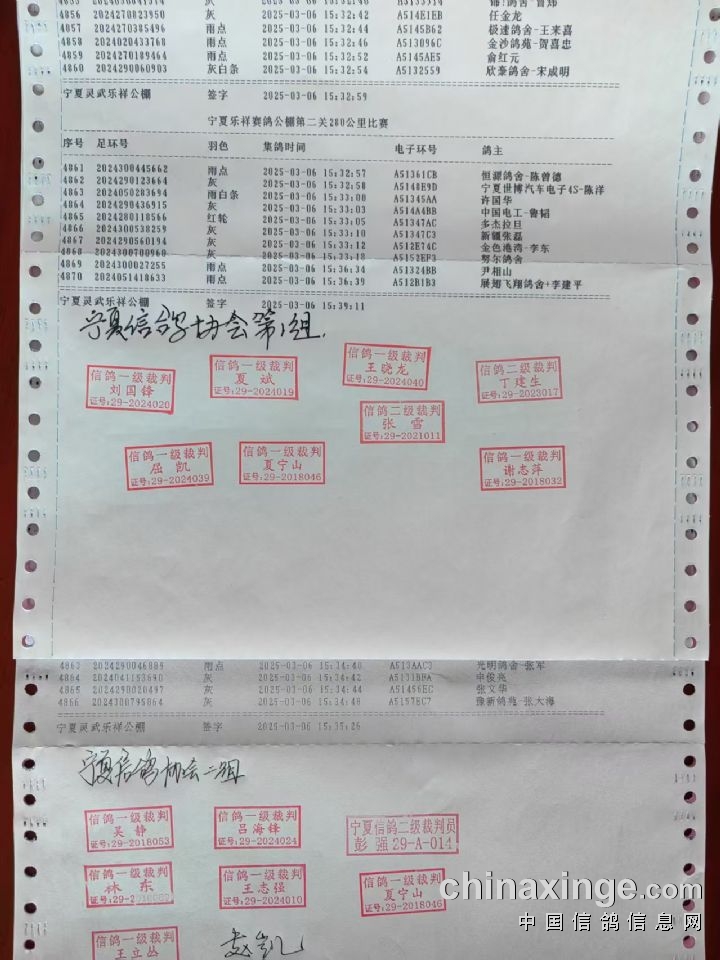 4856 2024270823950 灰 2025-03-06 15:32:42 A514E1EB 任金龙
4857 2024270385496 雨点 2025-03-06 15:32:44 A5145B62 极速鸽舍-王来喜
4858 2024020433768 雨点 2025-03-06 15:32:46 A513096C 金沙鸽苑-贺喜忠
4859 2024270189464 雨点 2025-03-06 15:32:52 A5145AE5 俞红元
4860 2024290060903 灰白条 2025-03-06 15:32:54 A5132559 欣豪鸽舍-宋成明
宁夏灵武乐祥公棚 签字 2025-03-06 15:32:59
宁夏乐祥赛鸽公棚第二关280公里比赛
序号 足环号 羽色 集鸽时间 电子环号 鸽主
4861 2024300445662 雨点 2025-03-06 15:32:57 A51361CB 恒源鸽舍-陈曾德
4862 2024290123664 灰 2025-03-06 15:32:58 A5148E9D 宁夏世博汽车电子4S-陈洋
4863 2024050283694 雨白条 2025-03-06 15:33:00 A51345AA 许国华
4864 2024290436915 灰 2025-03-06 15:33:03 A514A4BB 中国电工-鲁韬
4865 2024280118566 红轮 2025-03-06 15:33:05 A51347AC 多杰拉旦
4866 2024300538259 灰 2025-03-06 15:33:10 A51347C3 新疆张磊
4867 2024290560194 灰 2025-03-06 15:33:12 A512E74C 金色港湾-李东
4868 2024300700960 灰 2025-03-06 15:33:12 A5152EF3 努尔鸽舍
4869 2024300027255 雨点 2025-03-06 15:36:34 A51324BB 尹相山
4870 2024051418633 雨点 2025-03-06 15:36:39 A512B1B3 展翅飞翔鸽舍+李建平
宁夏灵武乐祥公棚 签字 2025-03-06 15:39:11
宁夏信鸽协会第1组
信鸽一级裁判 刘国锋 证号:29-2024020
信鸽一级裁判 夏斌 证号:29-2024019
信鸽一级裁判 王晓龙 证号:29-2024040
信鸽二级裁判 丁建生 证号:29-2023017
信鸽二级裁判 张雪 证号:29-2021011
信鸽一级裁判 屈凯 证号:29-2024039
信鸽一级裁判 夏宁山 证号:29-2018046
信鸽一级裁判 谢志萍 证号:29-2018032
4863 2024290046889 雨点 2025-03-06 15:34:40 A513AAC3 光明鸽舍-张军
4864 2024041153690 灰 2025-03-06 15:34:42 A5131BBA 申俊亮
4865 2024290020497 灰 2025-03-06 15:34:44 A51456EC 张文华
4866 2024300795864 灰 2025-03-06 15:34:48 A5157EC7 豫新鸽苑-张大海
宁夏灵武乐祥公棚 签字 2025-03-06 15:35:26
宁夏信鸽协会二组
信鸽一级裁判 吴静 证号:29-2018053
信鸽一级裁判 吕海锋 证号:29-2024024
宁夏信鸽二级裁判员 彭强 29-A-014
信鸽一级裁判 林东
信鸽一级裁判 王志强 证号:29-2024010
信鸽一级裁判 夏宁山 证号:29-2018046
信鸽一级裁判 王立丛
赵凯
chinaxinge.com
中国信鸽信息网